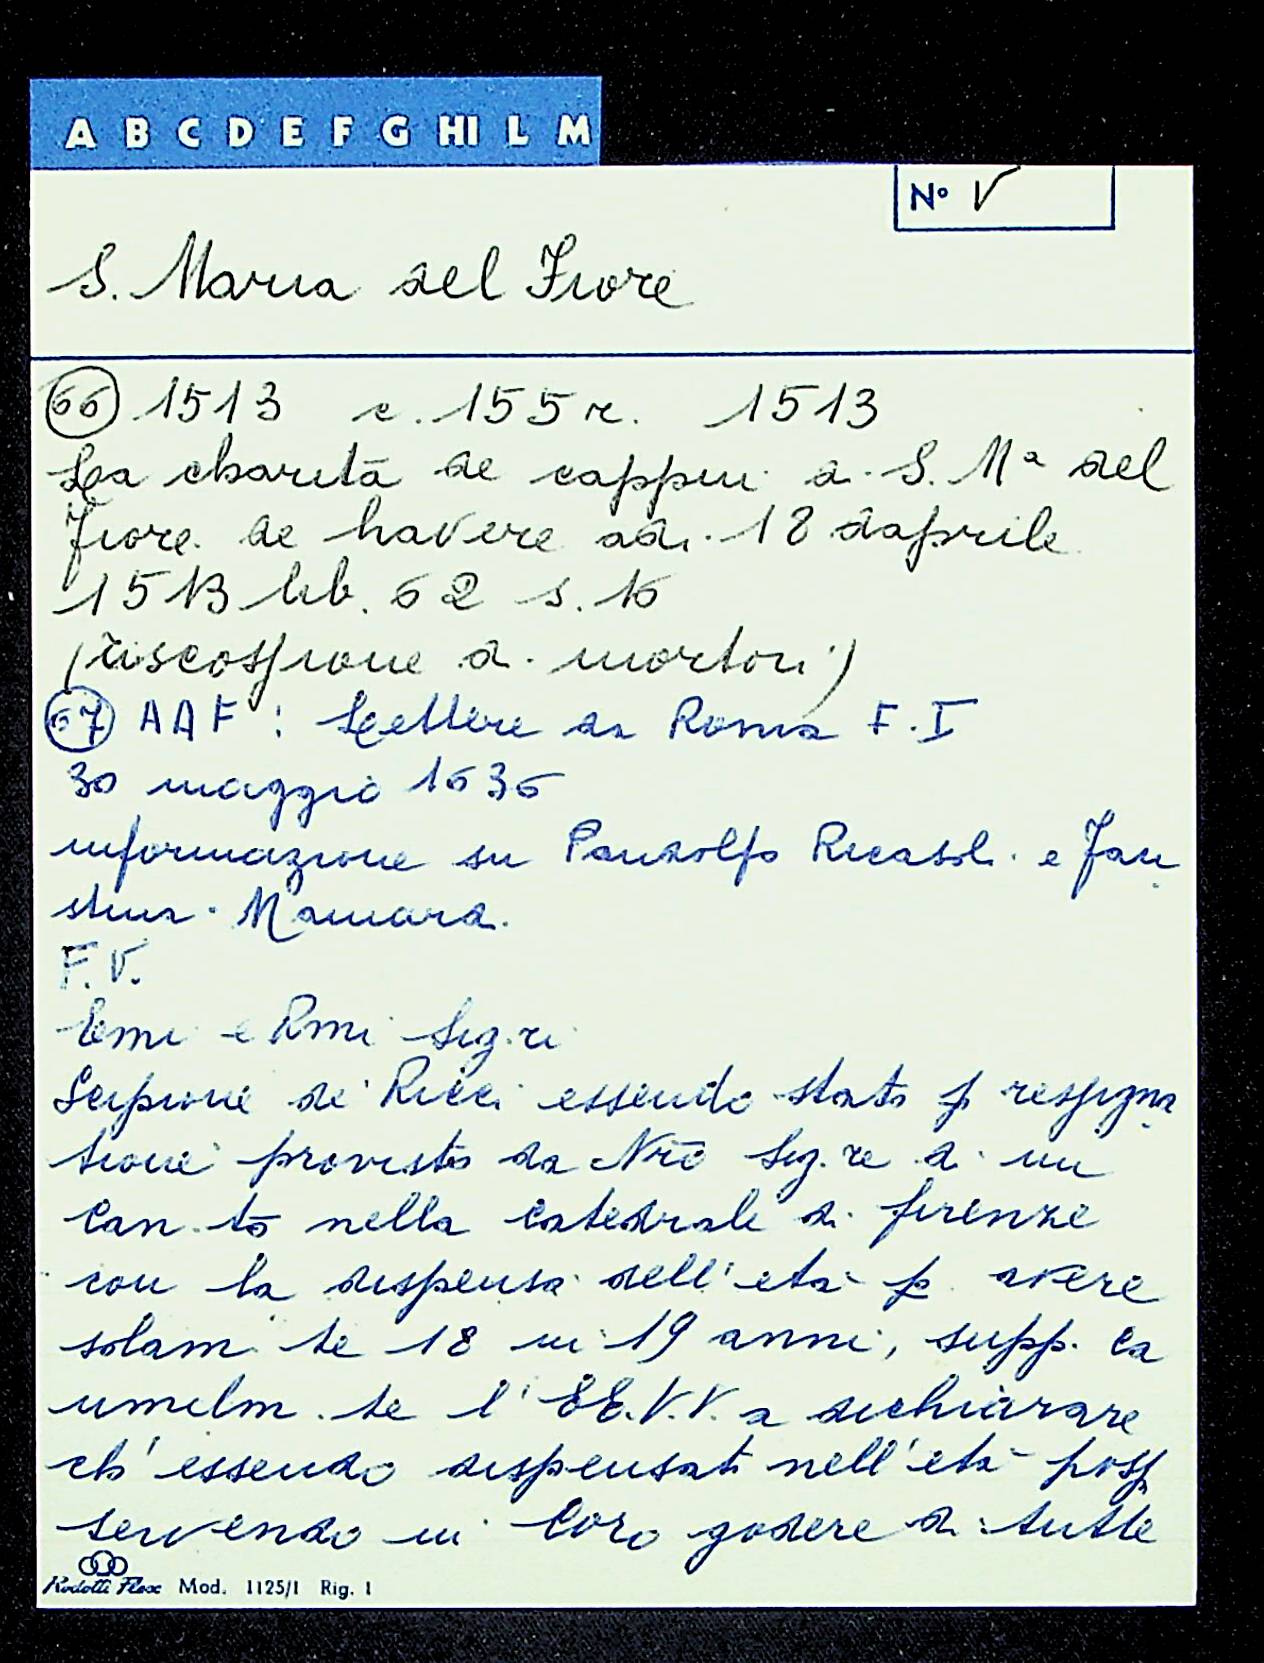 A B C D E F G HI L M
N° V
S. Maria del Fiore
66 1513 c. 155 r. 1513
La charità de cappni di S. Mª del
Fiore de havere adi 18 daprile
1513 lib. 62 s. 16
(riscossione di mortori)
67 AAF : Lettere da Roma F. I
30 maggio 1636
informazione su Pandolfo Ricasoli e Fau
stina Mainardi.
F.V.
Emi e Rmi Sig.ri
Scipione de Ricci essendo stato p resigna
tione provisto da Nrō Sig.re di un
Can.tō nella Catedrale di firenze
con la dispensa dell'età p avere
solam.te 18 in 19 anni, supp. ca
umilm.te l'EE.V.V. a dichiarare
ch'essendo dispensati nell'età poss
servendo in Coro godere di tutte
Rodotti Flex Mod. 1125/1 Rig. 1